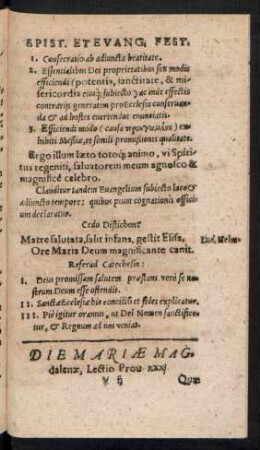 EPIST. ET EVANG. FEST.
1. Consecratio ab adiuncta beatitate.
2. Essentialibus Dei proprietatibus seu modis
efficiendi (potentia, sanctitate, & mi-
sericordia eiusq; subiecto) ac inde effectis
contrarijs generatim pro Ecclesia conseruan-
da & ad hostes euertendos enunciatis.
3. Efficiendi modo (causa προκαταρκτικ) ex-
hibiti Messiæ, et simili promissionis qualitate.
Ergo illum læto totoq́; animo, vi Spiri-
tus regeniti, saluatorem meum agnosco &
magnificè celebro.
Clauditur tandem Euangelium subiecto loco &
adiuncto tempore: quibus pium cognationis offici-
um declaratur.
Cedo Distichon?
Matre salutata, salit infans, gestit Elisa,
Ore Maria Deum magnificante canit.
Referad Catechesin:
I. Deus promissam salutem præstans verè se no-
strum Deum esse ostendit.
II. Sancta Ecclesiæ hic concilij et fides explicatur.
III. Pij igitur oramus, ut Dei Nomen sanctifice-
tur, & Regnum ad nos veniat.
DIE MARIÆ MAG-
dalenæ, Lectio Prou. xxxj.
Quæ